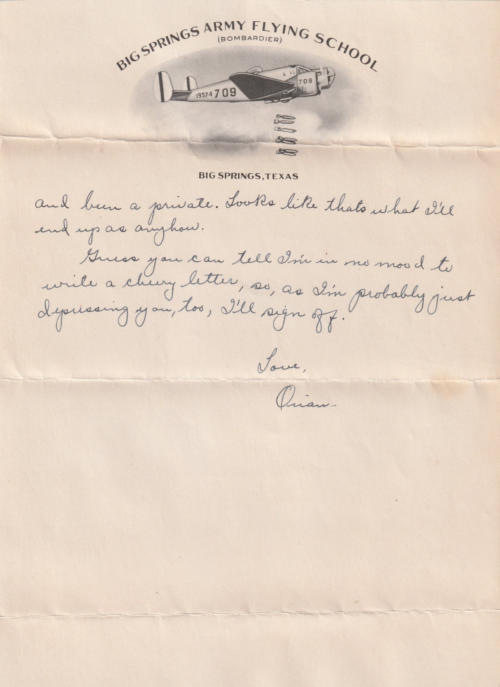 BIG SPRINGS ARMY FLYING SCHOOL
(BOMBARDIER)
19574 709
709
BIG SPRINGS, TEXAS
and been a private. Looks like thats what I'll
end up as anyhow.
Guess you can tell I'm in no mood to
write a cheery letter, so, as I'm probably just
depressing you, too, I'll sign off.
Love,